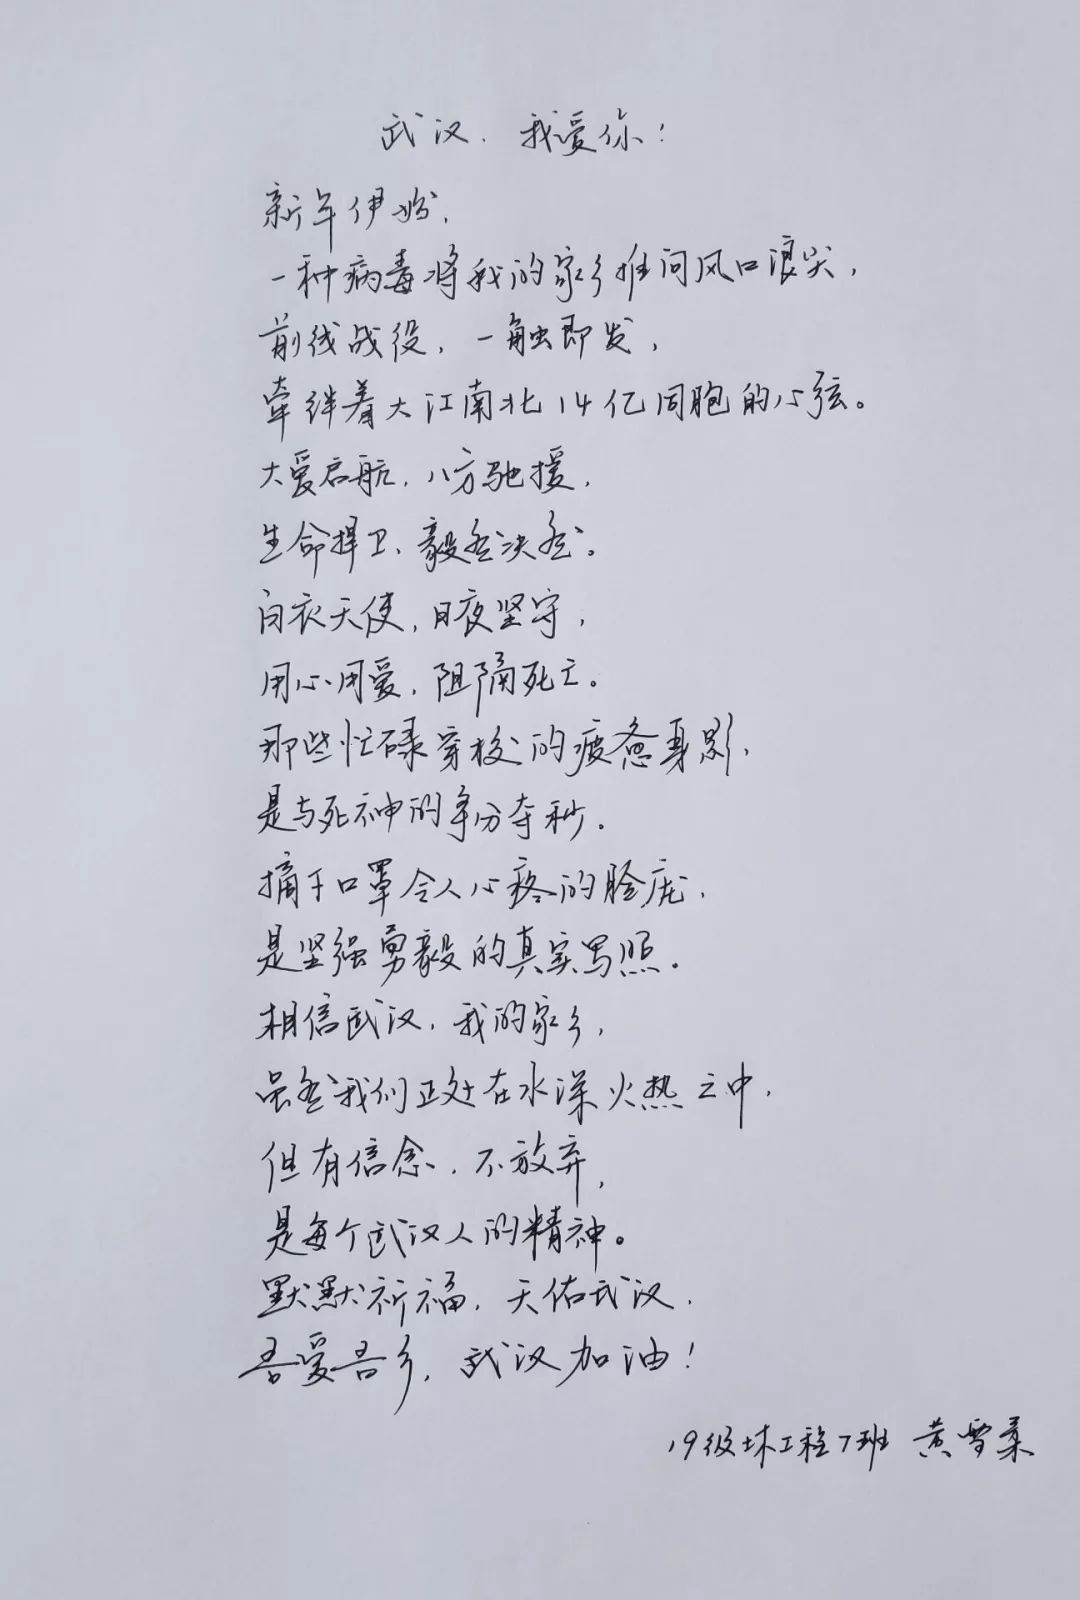 武汉，我爱你！
新年伊始，
一种病毒将我的家乡推向风口浪尖，
前线战役，一触即发，
牵绊着大江南北14亿同胞的心弦。
大爱启航，八方驰援，
生命捍卫、毅然决然。
白衣天使，日夜坚守，
用心用爱，阻隔死亡。
那些忙碌穿梭的疲惫身影，
是与死神的争分夺秒。
摘下口罩令人心疼的脸庞，
是坚强勇毅的真实写照。
相信武汉，我的家乡，
虽然我们正处在水深火热之中，
但有信念、不放弃，
是每个武汉人的精神。
默默祈福，天佑武汉，
吾爱吾乡，武汉加油！
19级土木工程7班 黄雪柔